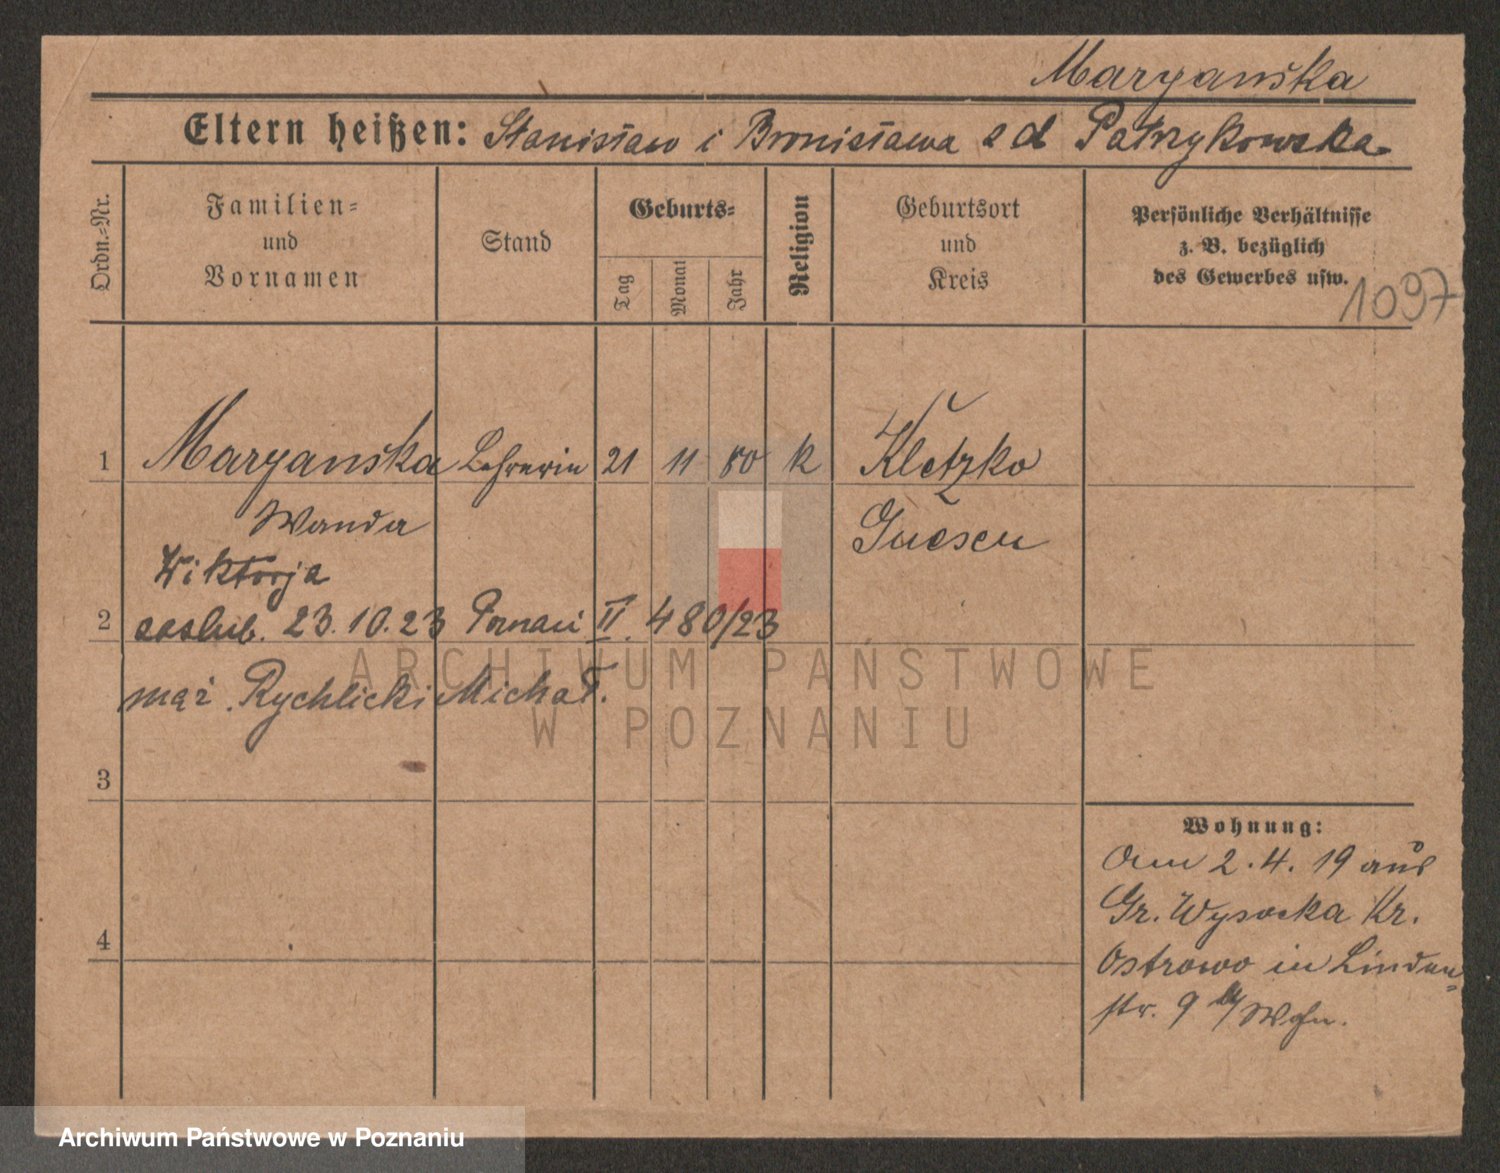 Maryanska
Eltern heißen: Stanisław i Bronisława z d Patrzykowska
Ordn.-Nr.
Familien-
und
Vornamen
Stand
Geburts-
Tag
Monat
Jahr
Religion
Geburtsort
und
Kreis
Persönliche Verhältnisse
z. B. bezüglich
des Gewerbes usw.
1097
1 Maryanska Lehrerin 21 11 80 k Kletzko
Wanda Gnesen
Wiktorja
2 zaslub. 23.10.23 Poznań II. 480/23
mąż. Rychlicki Michał.
3
Wohnung:
Am 2.4.19 aus
Gr. Wysocka Kr.
4
Ostrowo in Linden=
str. 9 Wohn.
ARCHIWUM PAŃSTWOWE
W POZNANIU
Archiwum Państwowe w Poznaniu